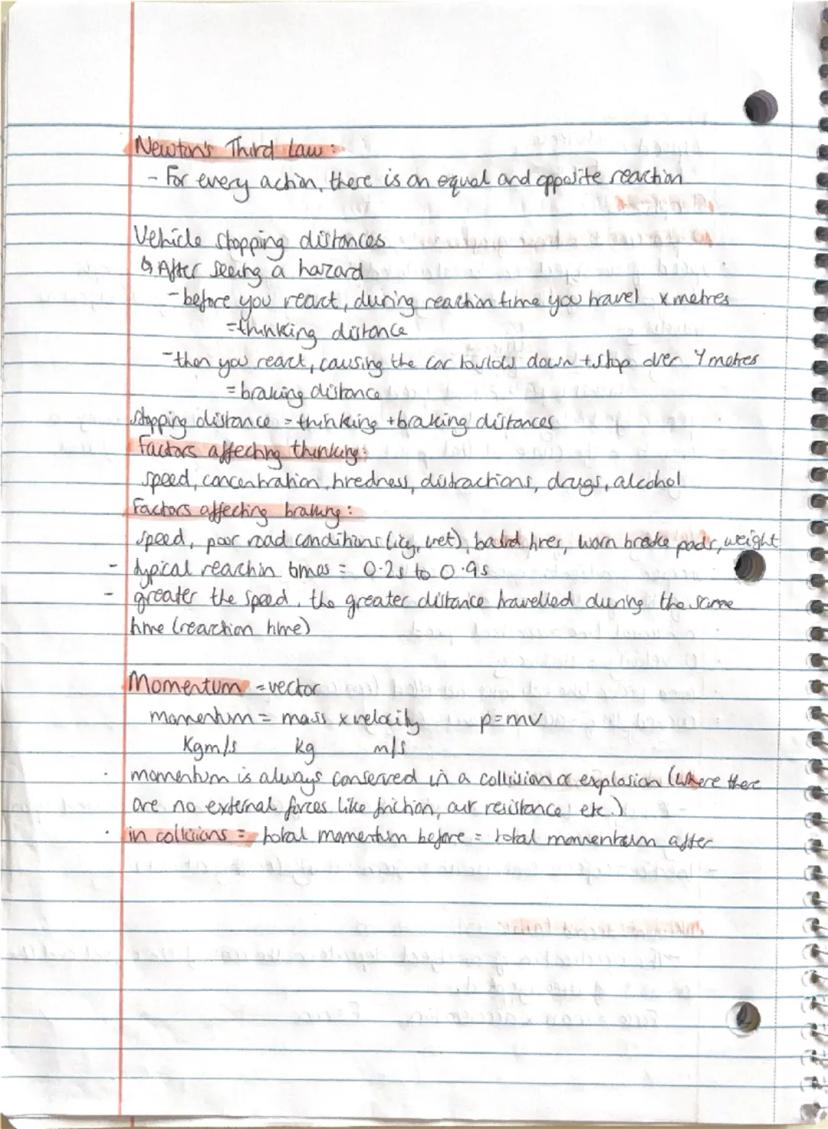 Newton's Third Law:
- For every action, there is an equal and opposite reaction
Vehicle stopping distances
↳ After seeing a hazard
- before you react, during reaction time you travel x metres
= thinking distance
- then you react, causing the car to slow down + stop over y metres
= braking distance
stopping distance = thinking + braking distances
Factors affecting thinking:
speed, concentration, tiredness, distractions, drugs, alcohol
Factors affecting braking:
speed, poor road conditions (icy, wet), bald tires, worn brake pads, weight
- typical reaction times = 0.2s to 0.9s
- greater the speed, the greater distance travelled during the same
time (reaction time)
Momentum = vector
momentum = mass x velocity p=mv
Kgm/s kg m/s
· momentum is always conserved in a collision or explosion (where there
are no external forces like friction, air resistance etc.)
· in collisions = total momentum before = total momentum after